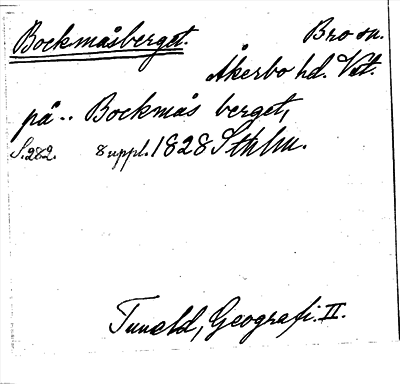 Bockmåsberget. Bro sn.
Åkerbo hd. Vst.
på .. Bockmås berget,
S. 282. 8 uppl. 1828 Sthlm.
Tuneld, Geografi. II.